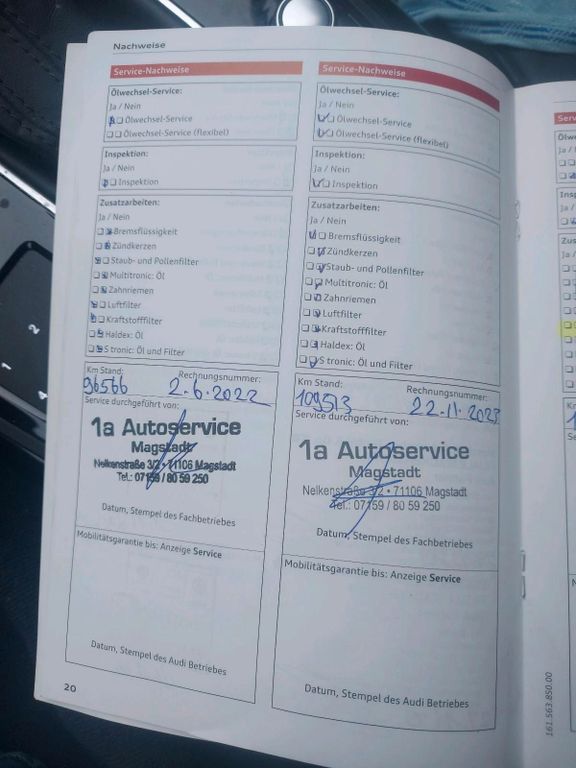 Nachweise
Service-Nachweise
Ölwechsel-Service:
Ja / Nein
Ölwechsel-Service
Ölwechsel-Service (flexibel)
Inspektion:
Ja / Nein
Inspektion
Zusatzarbeiten:
Ja / Nein
Bremsflüssigkeit
Zündkerzen
Staub- und Pollenfilter
Multitronic: Öl
Zahnriemen
Luftfilter
Kraftstofffilter
Haldex: Öl
S tronic: Öl und Filter
Km Stand:
Rechnungsnummer:
96566
2.6.2022
Service durchgeführt von:
1a Autoservice
Magstadt
Nelkenstraße 3/2 • 71106 Magstadt
Tel.: 07159 / 80 59 250
Datum, Stempel des Fachbetriebes
Mobilitätsgarantie bis: Anzeige Service
Datum, Stempel des Audi Betriebes
20
Service-Nachweise
Ölwechsel-Service:
Ja / Nein
Ölwechsel-Service
Ölwechsel-Service (flexibel)
Inspektion:
Ja / Nein
Inspektion
Zusatzarbeiten:
Ja / Nein
Bremsflüssigkeit
Zündkerzen
Staub- und Pollenfilter
Multitronic: Öl
Zahnriemen
Luftfilter
Kraftstofffilter
Haldex: Öl
S tronic: Öl und Filter
Km Stand:
Rechnungsnummer:
109513
22.11.2023
Service durchgeführt von:
1a Autoservice
Magstadt
Nelkenstraße 3/2 • 71106 Magstadt
Tel.: 07159 / 80 59 250
Datum, Stempel des Fachbetriebes
Mobilitätsgarantie bis: Anzeige Service
Datum, Stempel des Audi Betriebes
161.563.850.00